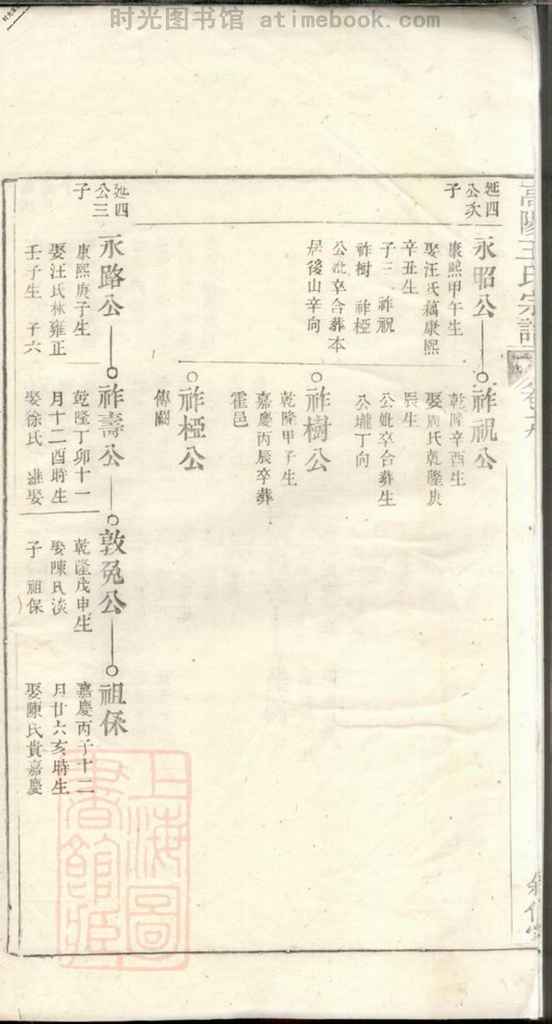 时光图书馆 atimebook.com
高陽王氏宗譜
卷十九
延四
公次
子
永昭公
康熙甲午生
娶汪氏 康熙
辛丑生
子三 祚祝
祚樹 祚椏
公妣卒合葬本
居後山辛向
祚祝公
乾隆辛酉生
娶周氏乾隆庚
辰生
公妣卒合葬生
公壠丁向
祚樹公
乾隆甲子生
嘉慶丙辰卒葬
霍邑
祚椏公
傳闕
延四
公三
子
永路公
康熙庚子生
娶汪氏林雍正
壬子生 子六
祚壽公
乾隆丁卯十一
月十二酉時生
娶徐氏 娶
敦兔公
乾隆戊申生
娶陳氏淡
子 祖保
祖保
嘉慶丙子十二
月廿六亥時生
娶陳氏貴嘉慶
上海圖
書館藏